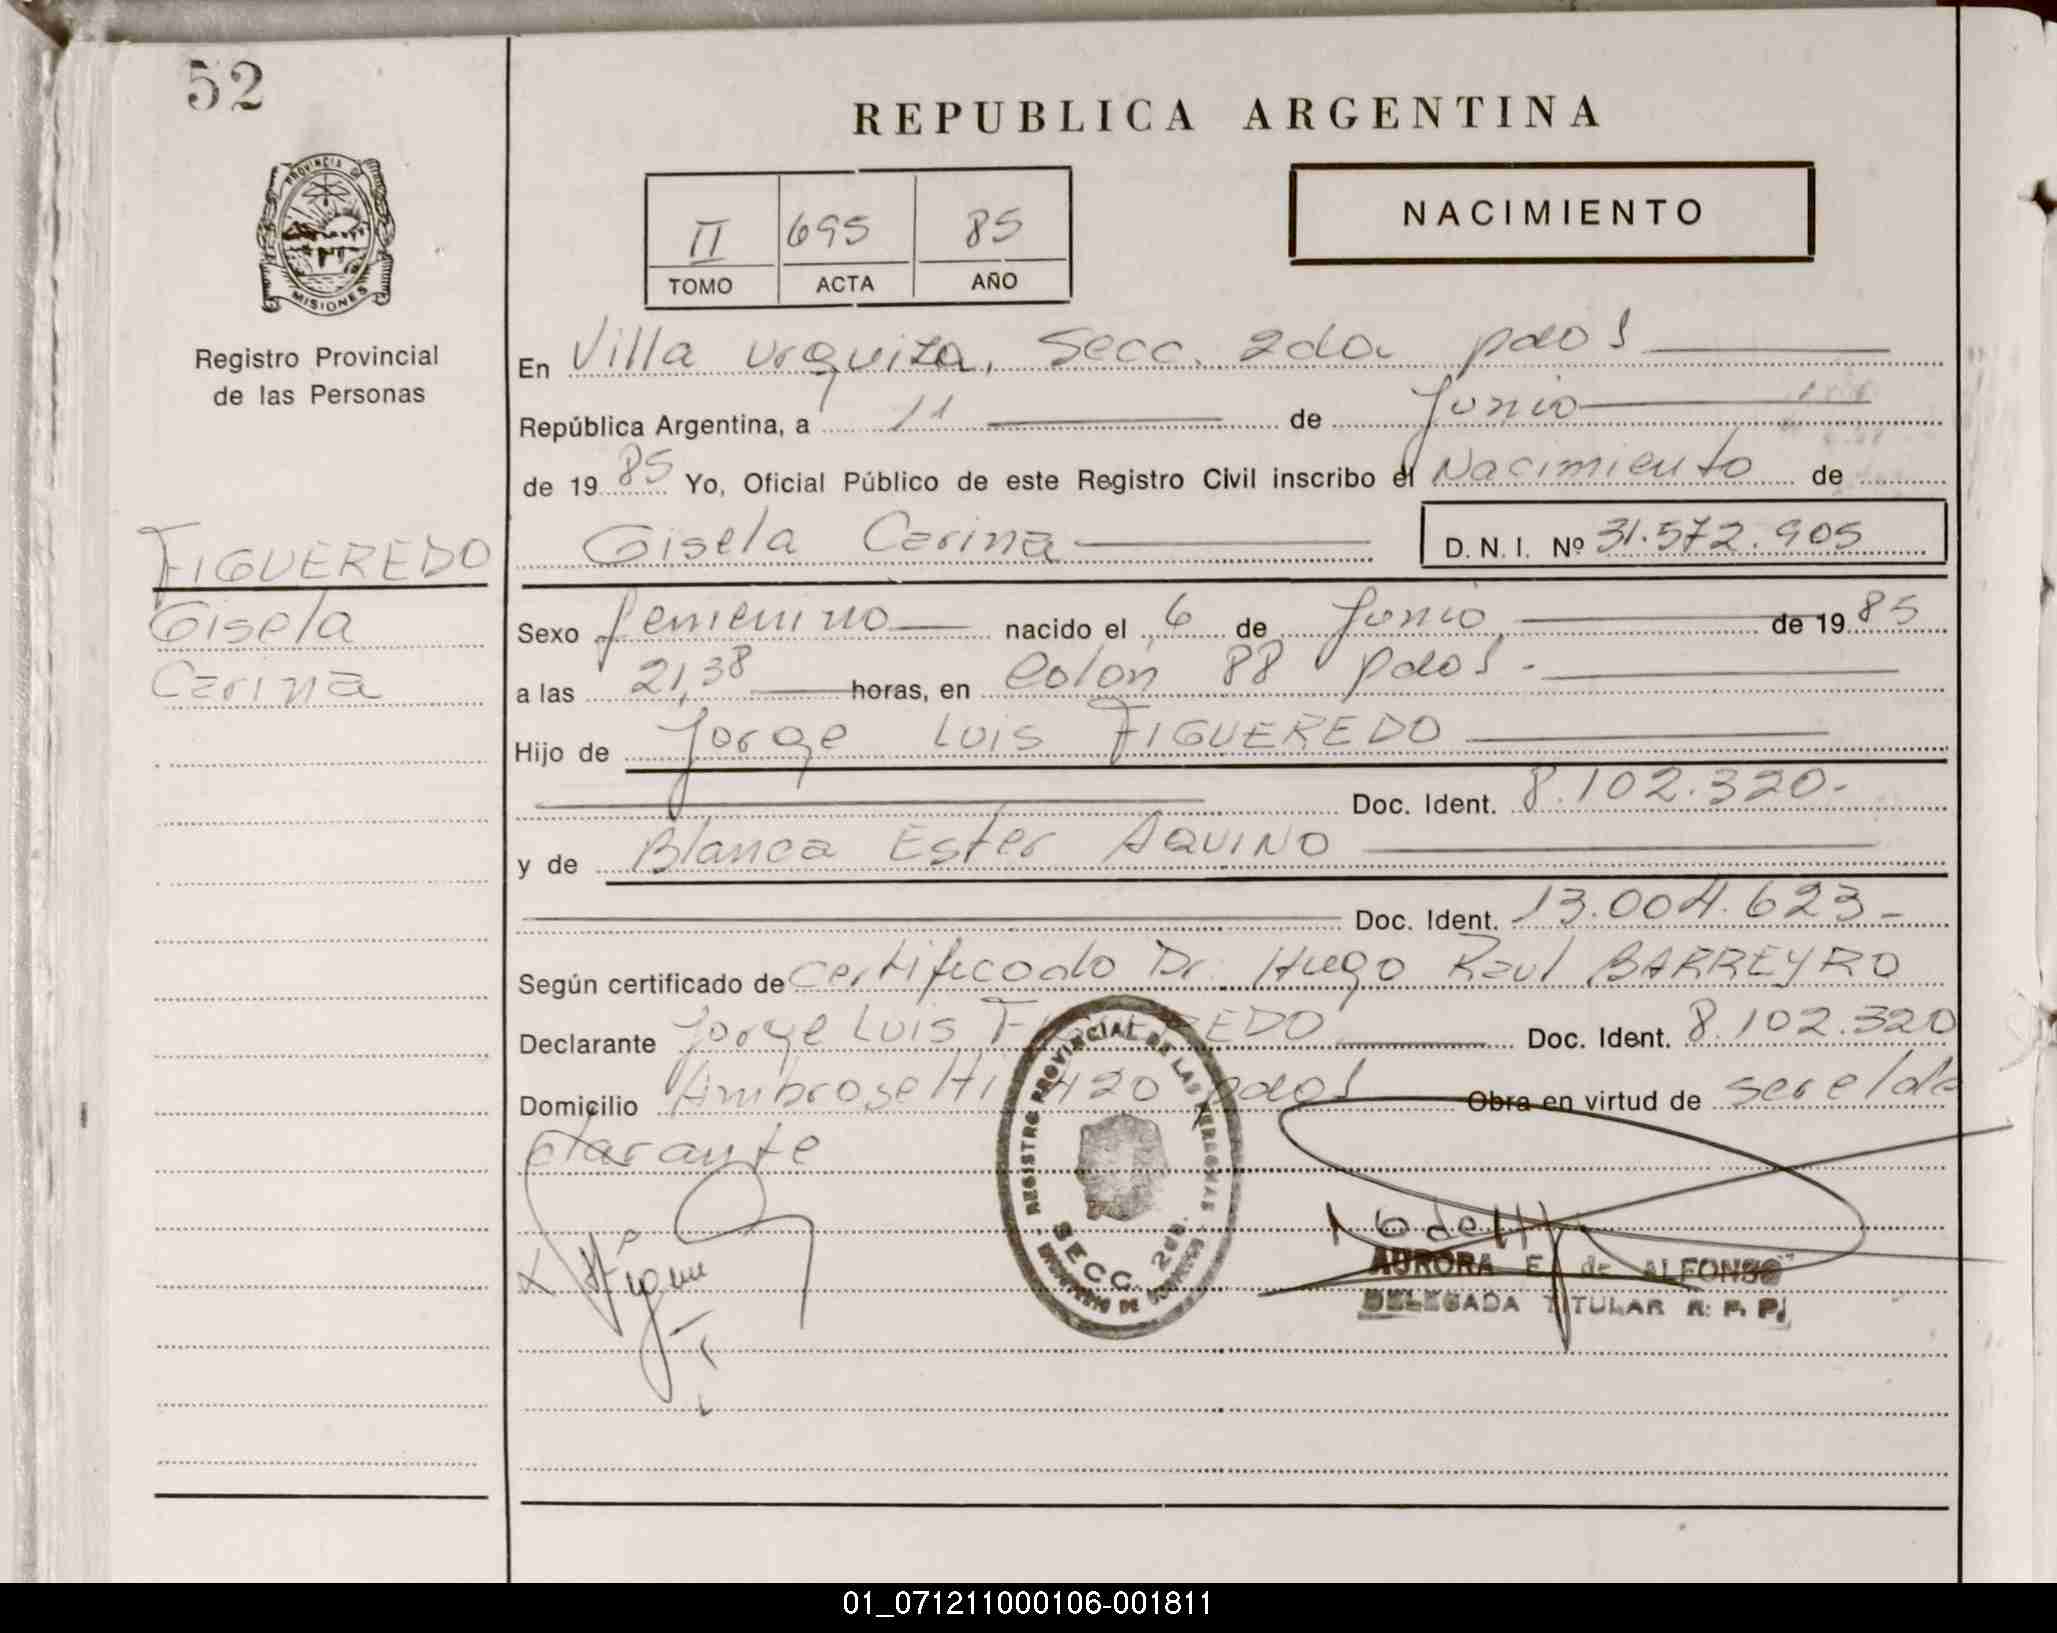 52
REPUBLICA ARGENTINA
PROVINCIA DE
MISIONES
Registro Provincial
de las Personas
II 695 85
TOMO ACTA AÑO
NACIMIENTO
En Villa Urquiza, Secc. 2da pdas
República Argentina, a 11 de Junio
de 19 85 Yo, Oficial Público de este Registro Civil inscribo el Nacimiento de
Gisela Carina D. N. I. Nº 31.572.905
FIGUEREDO
Gisela
Carina
Sexo femenino nacido el 6 de Junio de 19 85
a las 21,38 horas, en Colón 88 pdas.
Hijo de Jorge Luis FIGUEREDO
Doc. Ident. 8.102.320.
y de Blanca Ester AQUINO
Doc. Ident. 13.004.623
Según certificado de certificado Dr. Hugo Raul BARREYRO
Declarante Jorge Luis FIGUEREDO Doc. Ident. 8.102.320
Domicilio Ambrosetti 420 pdas Obra en virtud de ser el de
clarante
REGISTRO PROVINCIAL DE LAS PERSONAS
SECC. 2da.
AURORA E. de ALFONSO
DELEGADA TITULAR R. P. P.
01_071211000106-001811